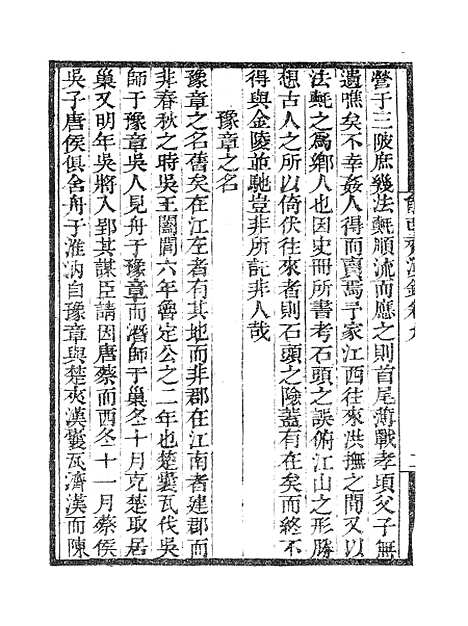 營于三陂庶幾法蚝順流而應之則首尾薄戰孝頃父子無
遺噍矣不幸姦人得而賣焉予家江西往來洪撫之間又以
法蚝之爲鄉人也因史冊所書考石頭之誤俯江山之形勝
想古人之所以倚伏往來者則石頭之險蓋有在矣而終不
得與金陵並馳豈非所託非人哉
豫章之名
豫章之名舊矣在江左者有其地而非郡在江南者建郡而
非春秋之時吳王闔閭六年魯定公之二年也楚囊瓦伐吳
師于豫章吳人見舟于豫章而潛師于巢冬十月克楚取居
巢又明年吳將入郢其謀臣請因唐蔡而西冬十一月蔡侯
吳子唐侯俱舍舟于淮汭自豫章與楚夾漢囊瓦濟漢而陳
能改齋漫錄卷九
二